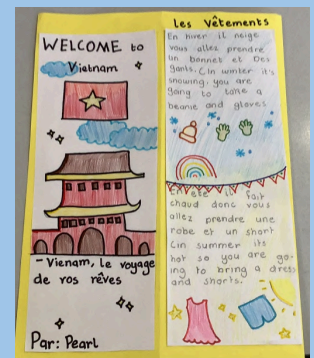 WELCOME to
Vietnam
- Vienam, le voyage
de vos rêves
Par: Pearl
Les Vêtements
En hiver il neige
vous allez prendre
un bonnet et Des
gants. Cin winter it's
snowing, you are
going to take a
beanie and gloves
En été il fait
chaud donc vous
allez prendre une
robe et un short
Cin summer its
hot so you are go-
ing to bring a dress
and shorts.